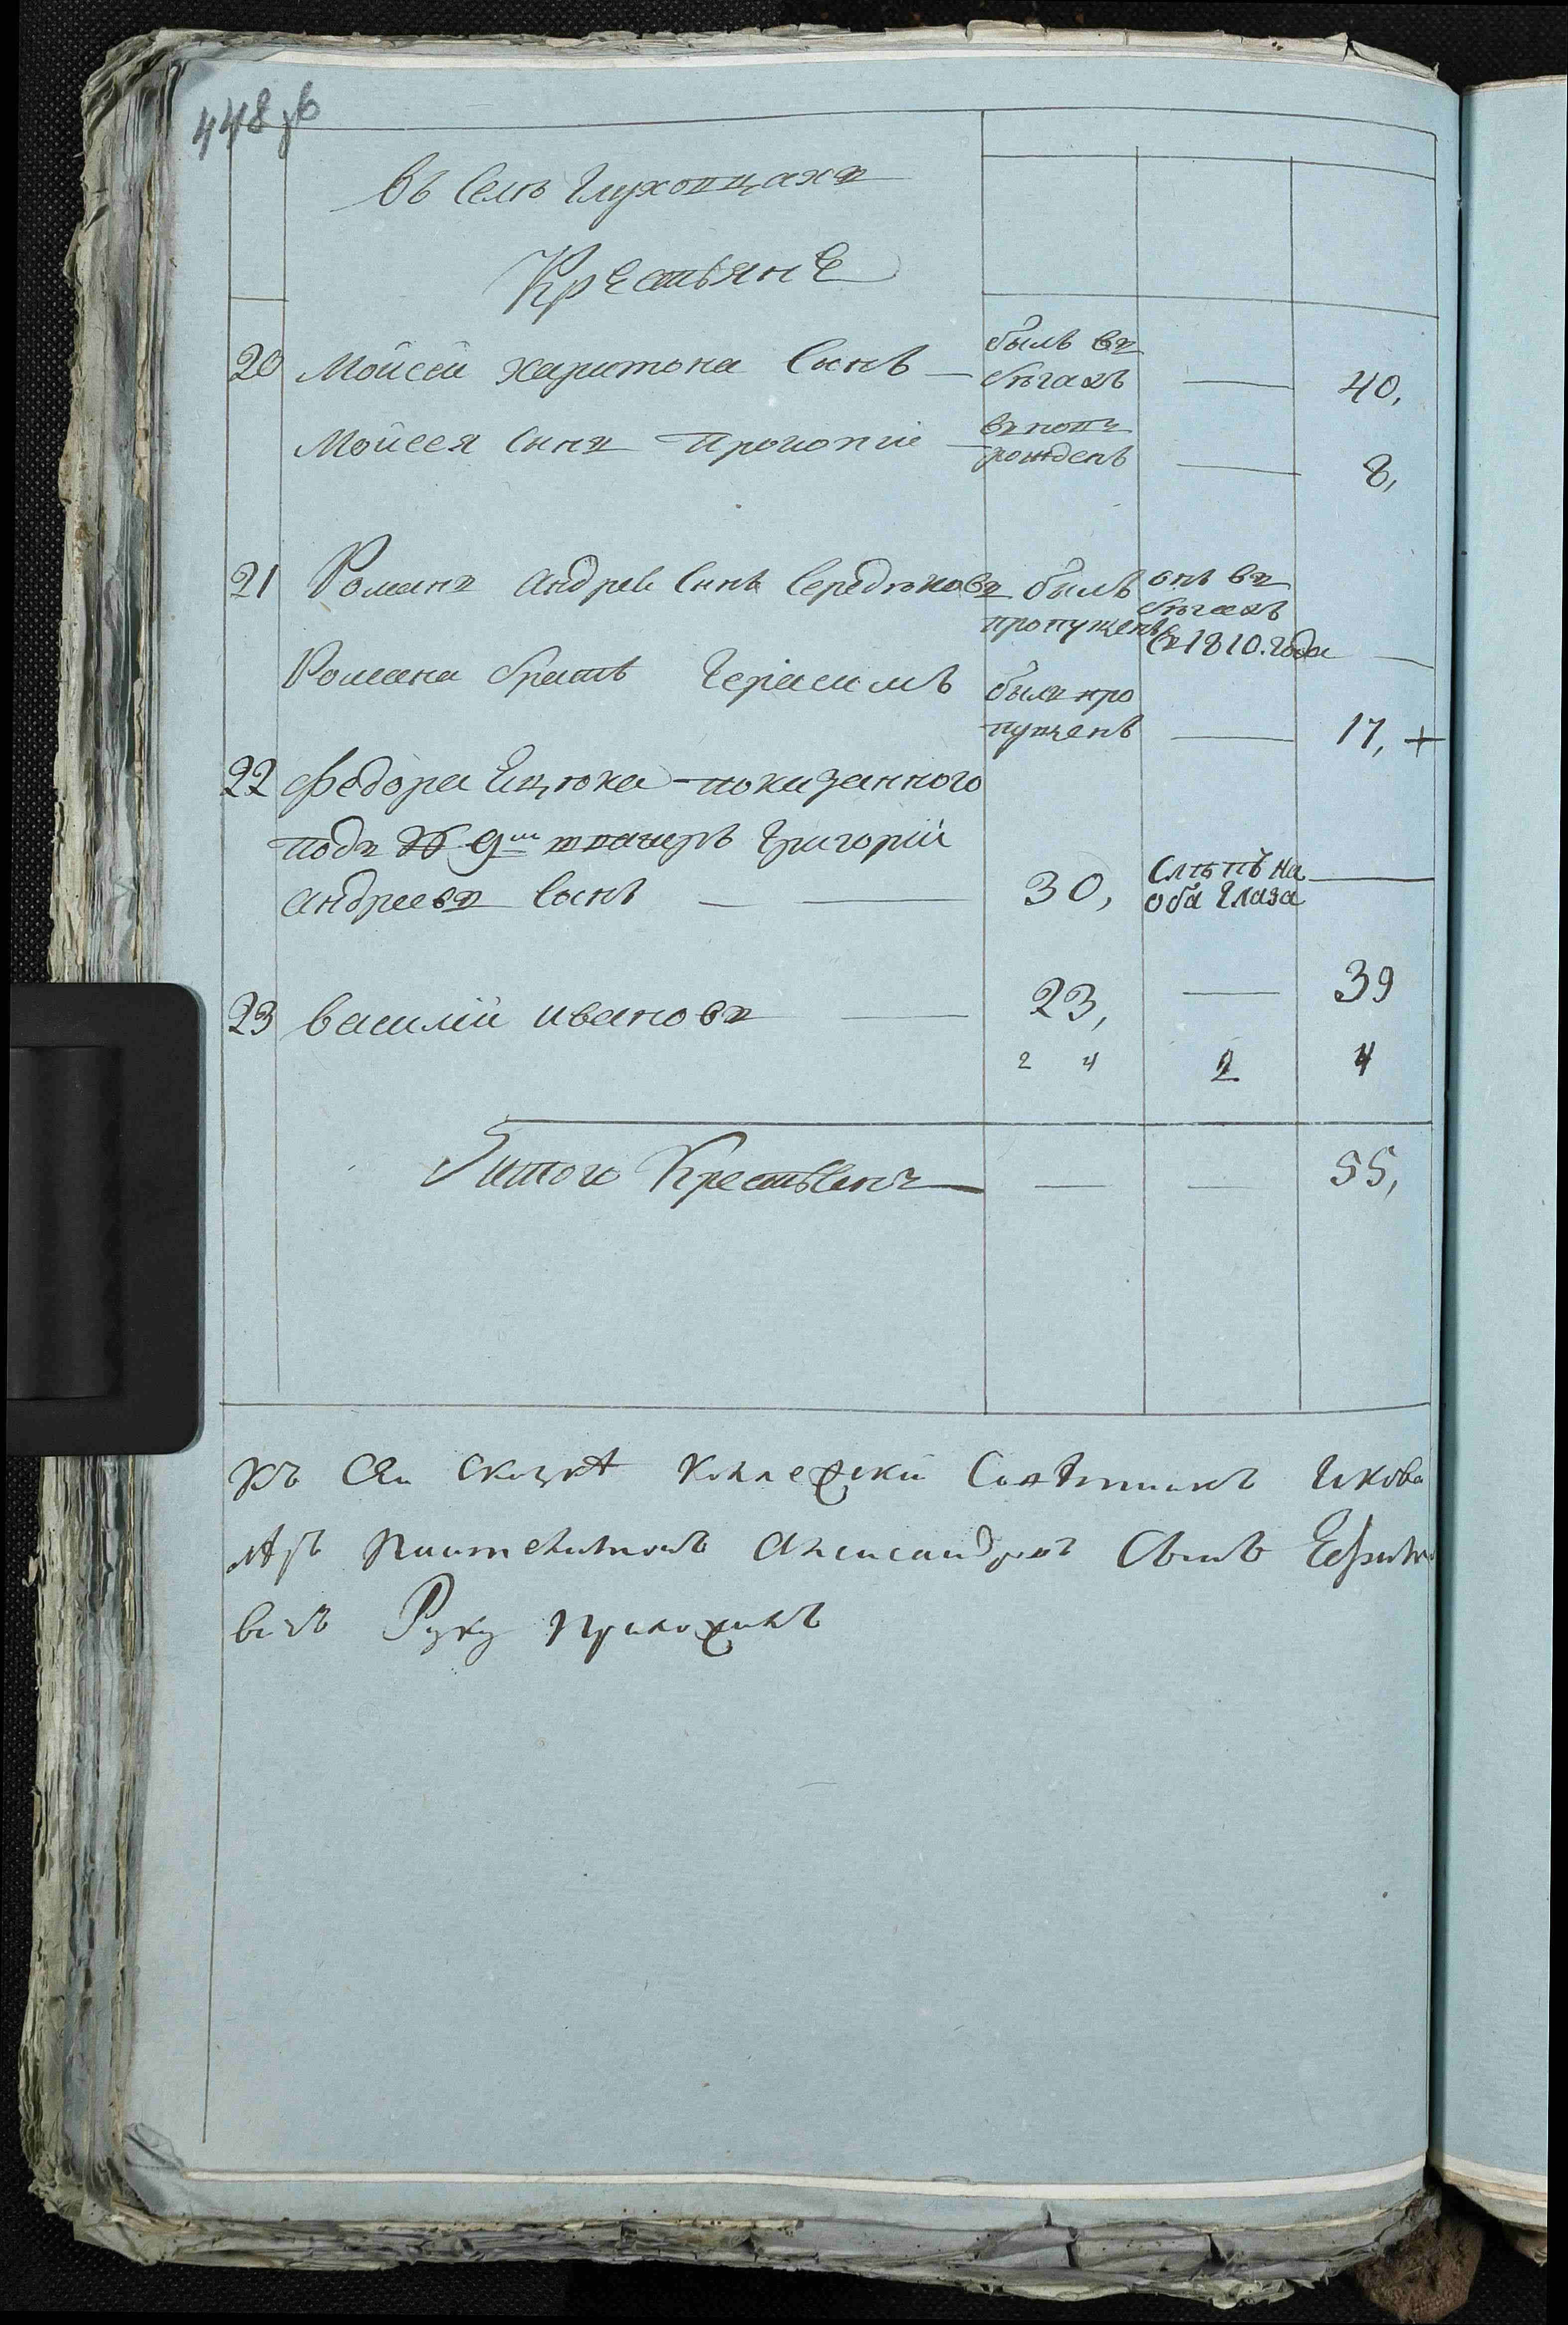 448 об
Въ Селѣ Глуховцахъ
Крестьяне
20 Мойсей Харитона Сынъ — былъ въ бѣгахъ — 40,
Мойсея Сынъ Прокопій — рожденъ — 8,
21 Романъ Андреевъ Сынъ Середюковъ былъ пропущенъ онъ въ бѣгахъ съ 1810. года —
Романа братъ Герасимъ былъ пропущенъ — 17, +
22 Федора Яцюка показанного
подъ № 9мъ Григорій
Андреевъ Сынъ — 30, Слѣпъ на оба глаза —
23 Василий Ивановъ — 23, — 39
2 4 2 4
Итого Крестьянъ — — 55,
Къ Сей Сказкѣ Коллежский Совѣтникъ
Александровъ Сынъ
Руку приложилъ